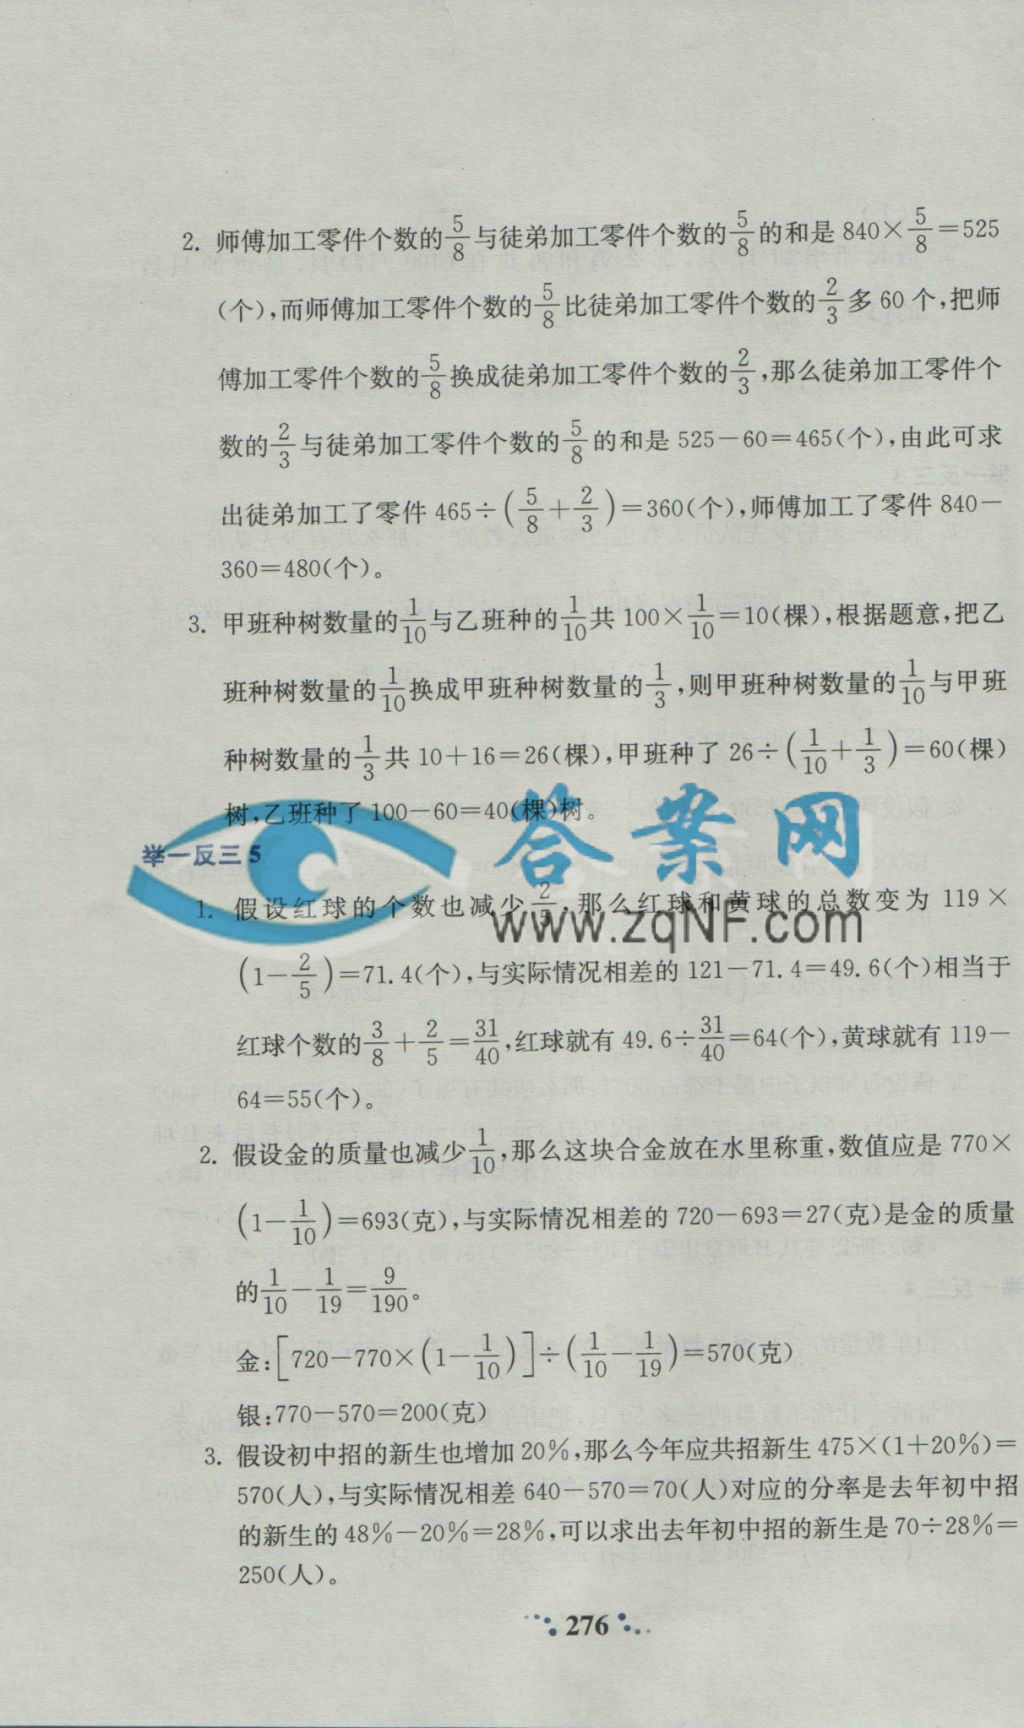 2. 师傅加工零件个数的5/8与徒弟加工零件个数的5/8的和是 840×5/8=525
(个),而师傅加工零件个数的5/8比徒弟加工零件个数的2/3多 60 个,把师
傅加工零件个数的5/8换成徒弟加工零件个数的2/3,那么徒弟加工零件个
数的2/3与徒弟加工零件个数的5/8的和是 525-60=465(个),由此可求
出徒弟加工了零件 465÷(5/8+2/3)=360(个),师傅加工了零件 840-
360=480(个)。
3. 甲班种树数量的1/10与乙班种的1/10共 100×1/10=10(棵),根据题意,把乙
班种树数量的1/10换成甲班种树数量的1/3,则甲班种树数量的1/10与甲班
种树数量的1/3共 10+16=26(棵),甲班种了 26÷(1/10+1/3)=60(棵)
树,乙班种了 100-60=40(棵)树。
答案网
举一反三 5
1. 假设红球的个数也减少2/5,那么红球和黄球的总数变为 119×
www.zqNF.com
(1-2/5)=71.4(个),与实际情况相差的 121-71.4=49.6(个)相当于
红球个数的3/8+2/5=31/40,红球就有 49.6÷31/40=64(个),黄球就有 119-
64=55(个)。
2. 假设金的质量也减少1/10,那么这块合金放在水里称重,数值应是 770×
(1-1/10)=693(克),与实际情况相差的 720-693=27(克)是金的质量
的1/10-1/19=9/190。
金:[720-770×(1-1/10)]÷(1/10-1/19)=570(克)
银:770-570=200(克)
3. 假设初中招的新生也增加 20%,那么今年应共招新生 475×(1+20%)=
570(人),与实际情况相差 640-570=70(人)对应的分率是去年初中招
的新生的 48%-20%=28%,可以求出去年初中招的新生是 70÷28%=
250(人)。
276